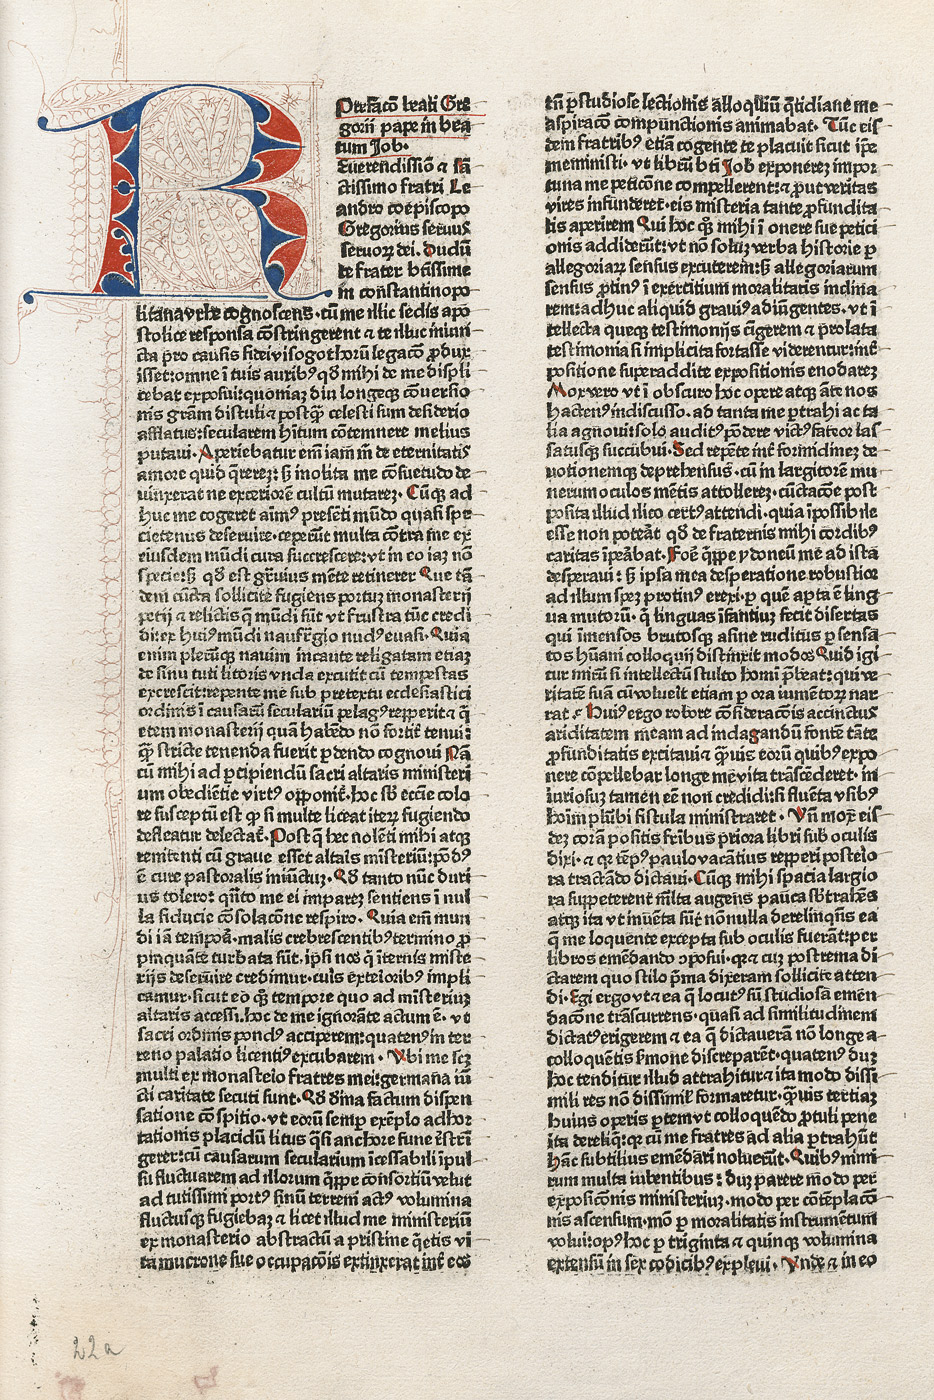 Prefacō beati Gre
gorii pape in bea
tum Job.
R
Euerendissīo ⁊ sā
ctissimo fratri Le
andro coepiscopo
Gregorius seruus
seruoꝝ dei. Dudū
te frater bt̄issime
in constantinopo
litana vrbe cognoscens · cū me illic sedis apo
stolice responsa cōstringerent ⁊ te illuc iniun
cta pro causis fidei visogothorū legacō ꝑdux
isset: omne ī tuis auribꝰ qd̄ mihi de me displi
cebat exposui: quoniaꝫ diu longeqꝫ cōuersio
nis grām distuli ⁊ postqꝫ̄ celesti sum desiderio
afflatus: secularem hītum cōtemnere melius
putaui · Aperiebatur em̄ iam m̄ de eternitatis
amore quid q̄rereꝫ: sꝫ inolita me cōsuetudo de
uinxerat ne exteriorē cultū mutareꝫ · Cūqꝫ ad
huc me cogeret aīmꝰ presēti mūdo quasi spe
cietenus deseruire · ceperūt multa cōtra me ex
eiusdem mūdi cura succrescere: vt in eo iaꝫ nō
specie: sꝫ qd̄ est grauius mēte retinerer Que tā
dem cūcta sollicite fugiens portuꝫ monasterij
petij ⁊ relictis q̄ mūdi sūt vt frustra tūc credi
di: ex huiꝰ mūdi naufragio nudꝰ euasi · Quia
enim plerūqꝫ nauim incaute religatam etiaꝫ
de sinu tuti litoris vnda excutit cū tempestas
excrescit: repente me sub pretextu ecclesiastici
ordinis ī causarū seculariū pelagꝰ repperi ⁊ q̄
etem monasterij quā habēdo nō fortit̄ tenui:
qꝫ̄ stricte tenenda fuerit ꝑdendo cognoui Nā
cū mihi ad ꝑcipiendū sacri altaris ministeri
um obediētie virtꝰ opponit̄ · hoc sb̄ eccīe colo
re susceptū est qꝫ si multe liceat iteꝝ fugiendo
defleatur delectat̄ · Post q̄ hec nolēti mihi atqꝫ
renitenti cū graue esset altais misteriū: pōdꝰ
ē cure pastoralis iniūctuꝫ · Qd̄ tanto nūc duri
us tolero: quāto me ei imparēꝫ sentiens ī nul
la fiducie cōsolacōne respiro · Quia em̄ mun
di iā tempoā · malis crebrescentibꝰ termino ꝓ
pinquāte turbata sūt · ipsi nos q̄ īternis miste
rijs deseruire credimur · cuīs exterioribꝰ impli
camur · sicut eo qꝫ̄ tempore quo ad misteriuꝫ
altaris accessi · hoc de me ignorāte actum ē · vt
sacri ordinis pondꝰ acciperem: quatenꝰ in ter
reno palatio licentiꝰ excubarem · Vbi me scꝫ
multi ex monasteio fratres mei: germana iū
cti caritate secuti sunt · Qd̄ diuīna factum dispen
satione cōspitio · vt eorū semꝑ exēplo ad hor
tationis placidū litus q̄si anchore fune ēstri
gerer: cū causarum secularium īcessabili īpul
su fluctuarem ad illorum q̄ppe cōsortiū velut
ad tutissimi portꝰ sinū terreni actꝰ volumina
fluctusqꝫ fugiebaꝫ ⁊ licet illud me ministeriū
ex monasterio abstractū a pristine q̄etis vi
ta mucrone sue occupacōis extinxerat int̄ eos
tn̄ ꝑ studiose lectionis alloquiū q̄tidiane me
aspiracō compunctionis animabat · Tūc eis
dem fratribꝰ etiā cogente te placuit sicut ipē
meministi · vt librū bt̄i Job exponereꝫ impor
tuna me peticōne compellerent: ⁊ ꝓut veritas
vires infunderet · eis misteria tante ꝓfundita
tis aperirem Qui hoc qꝫ̄ mihi ī onere sue petici
onis addiderūt: vt nō soluꝫ verba historie ꝑ
allegoriaꝝ sensus excuterem: sꝫ allegoriarum
sensus ꝓtinꝰ ī exercitium moralitatis inclina
rem: adhuc aliquid grauiꝰ adiūgentes · vt ī
tellecta queqꝫ testimonijs cīgerem ⁊ prolata
testimonia si implicita fortasse viderentur: int̄
positione superaddite expositionis enodareꝫ
Mox vero vt ī obscuro hoc opere atqꝫ āte nos
hactenꝰ indiscusso · ad tanta me ꝑtrahi ac ta
lia agnoui: solo auditꝰ pōdere victꝰ fateor las
satusqꝫ succubui · Sed repēte int̄ formidineꝫ de
uotionemqꝫ deprehensus · cū in largitorē mu
nerum oculos mētis attollereꝫ · cūctacōe post
posita illud ilico certꝰ attendi · quia īpossibile
esse non poteāt qd̄ de fraternis mihi cordibꝰ
caritas īpeābat · Foē q̄ppe ydoneū me ad ista
desperaui: sꝫ ipsa mea desperatione robustior
ad illum speꝫ protinꝰ erexi · ꝑ quē apta ē ling
ua mutorū · q̄ linguas īfantiuꝫ fecit disertas
qui īmensos brutosqꝫ asine ruditus ꝑ sensa
tos hūani colloquij distinxit modos Quid igi
tur mirū si intellectū stulto homī p̄beat: qui ve
ritatē suā cū voluerit etiam ꝑ ora iumētoꝝ nar
rat · Huiꝰ ergo robore cōsideracōis accinctus
ariditatem meam ad indagandū fontē tāte
ꝓfunditatis excitaui ⁊ qꝫ̄uis eorū quibꝰ expo
nere cōpellebar longe me vita trāscēderet · in
iuriosuꝫ tamen eē non credidi: si fluēta vsibꝰ
hoīm plūbi fistula ministraret · Vn̄ mox eis
deꝫ corā positis frībus priora libri sub oculis
dixi · ⁊ qꝛ tēpꝰ paulo vacātius repperi posterio
ra tractādo dictaui · Cūqꝫ mihi spacia largio
ra suppeterent m̄lta augens pauca sb̄trahēs
atqꝫ ita vt inuēta sūt nōnulla derelinqn̄s ea
q̄ me loquente excepta sub oculis fuerāt: per
libros emēdando ↄposui · qꝛ ⁊ cuꝫ postrema di
ctarem quo stilo p̄ma dixeram sollicite atten
di · Egi ergo vt ⁊ ea q̄ locutꝰ sū studiosa emēn
dacōne trāscurrens · quasi ad similitudinem
dictatꝰ erigerem ⁊ ea q̄ dictauerā nō longe a
colloquētis s̄mone discreparēt · quatenꝰ duꝫ
hoc tenditur illud attrahitur ⁊ ita modo dissi
mili res nō dissimilꝭ formaretur · qꝫ̄uis tertiaꝫ
huius operis ꝑtem vt colloquēdo ꝓtuli pene
ita dereliq̄: qꝛ cū me fratres ad alia ꝑtrahūt
hāc subtilius emēdari noluerūt · Quibꝰ nimi
rum multa iubentibus: duꝫ parere modo per
exposicōnis ministeriuꝫ · modo per cōtēplacō
nis ascensum · mō ꝑ moralitatis instrumētum
volui: opꝰ hoc ꝑ triginta ⁊ quinqꝫ volumina
extensū in sex codicibꝰ expleui · Vnde ⁊ in eo
22a